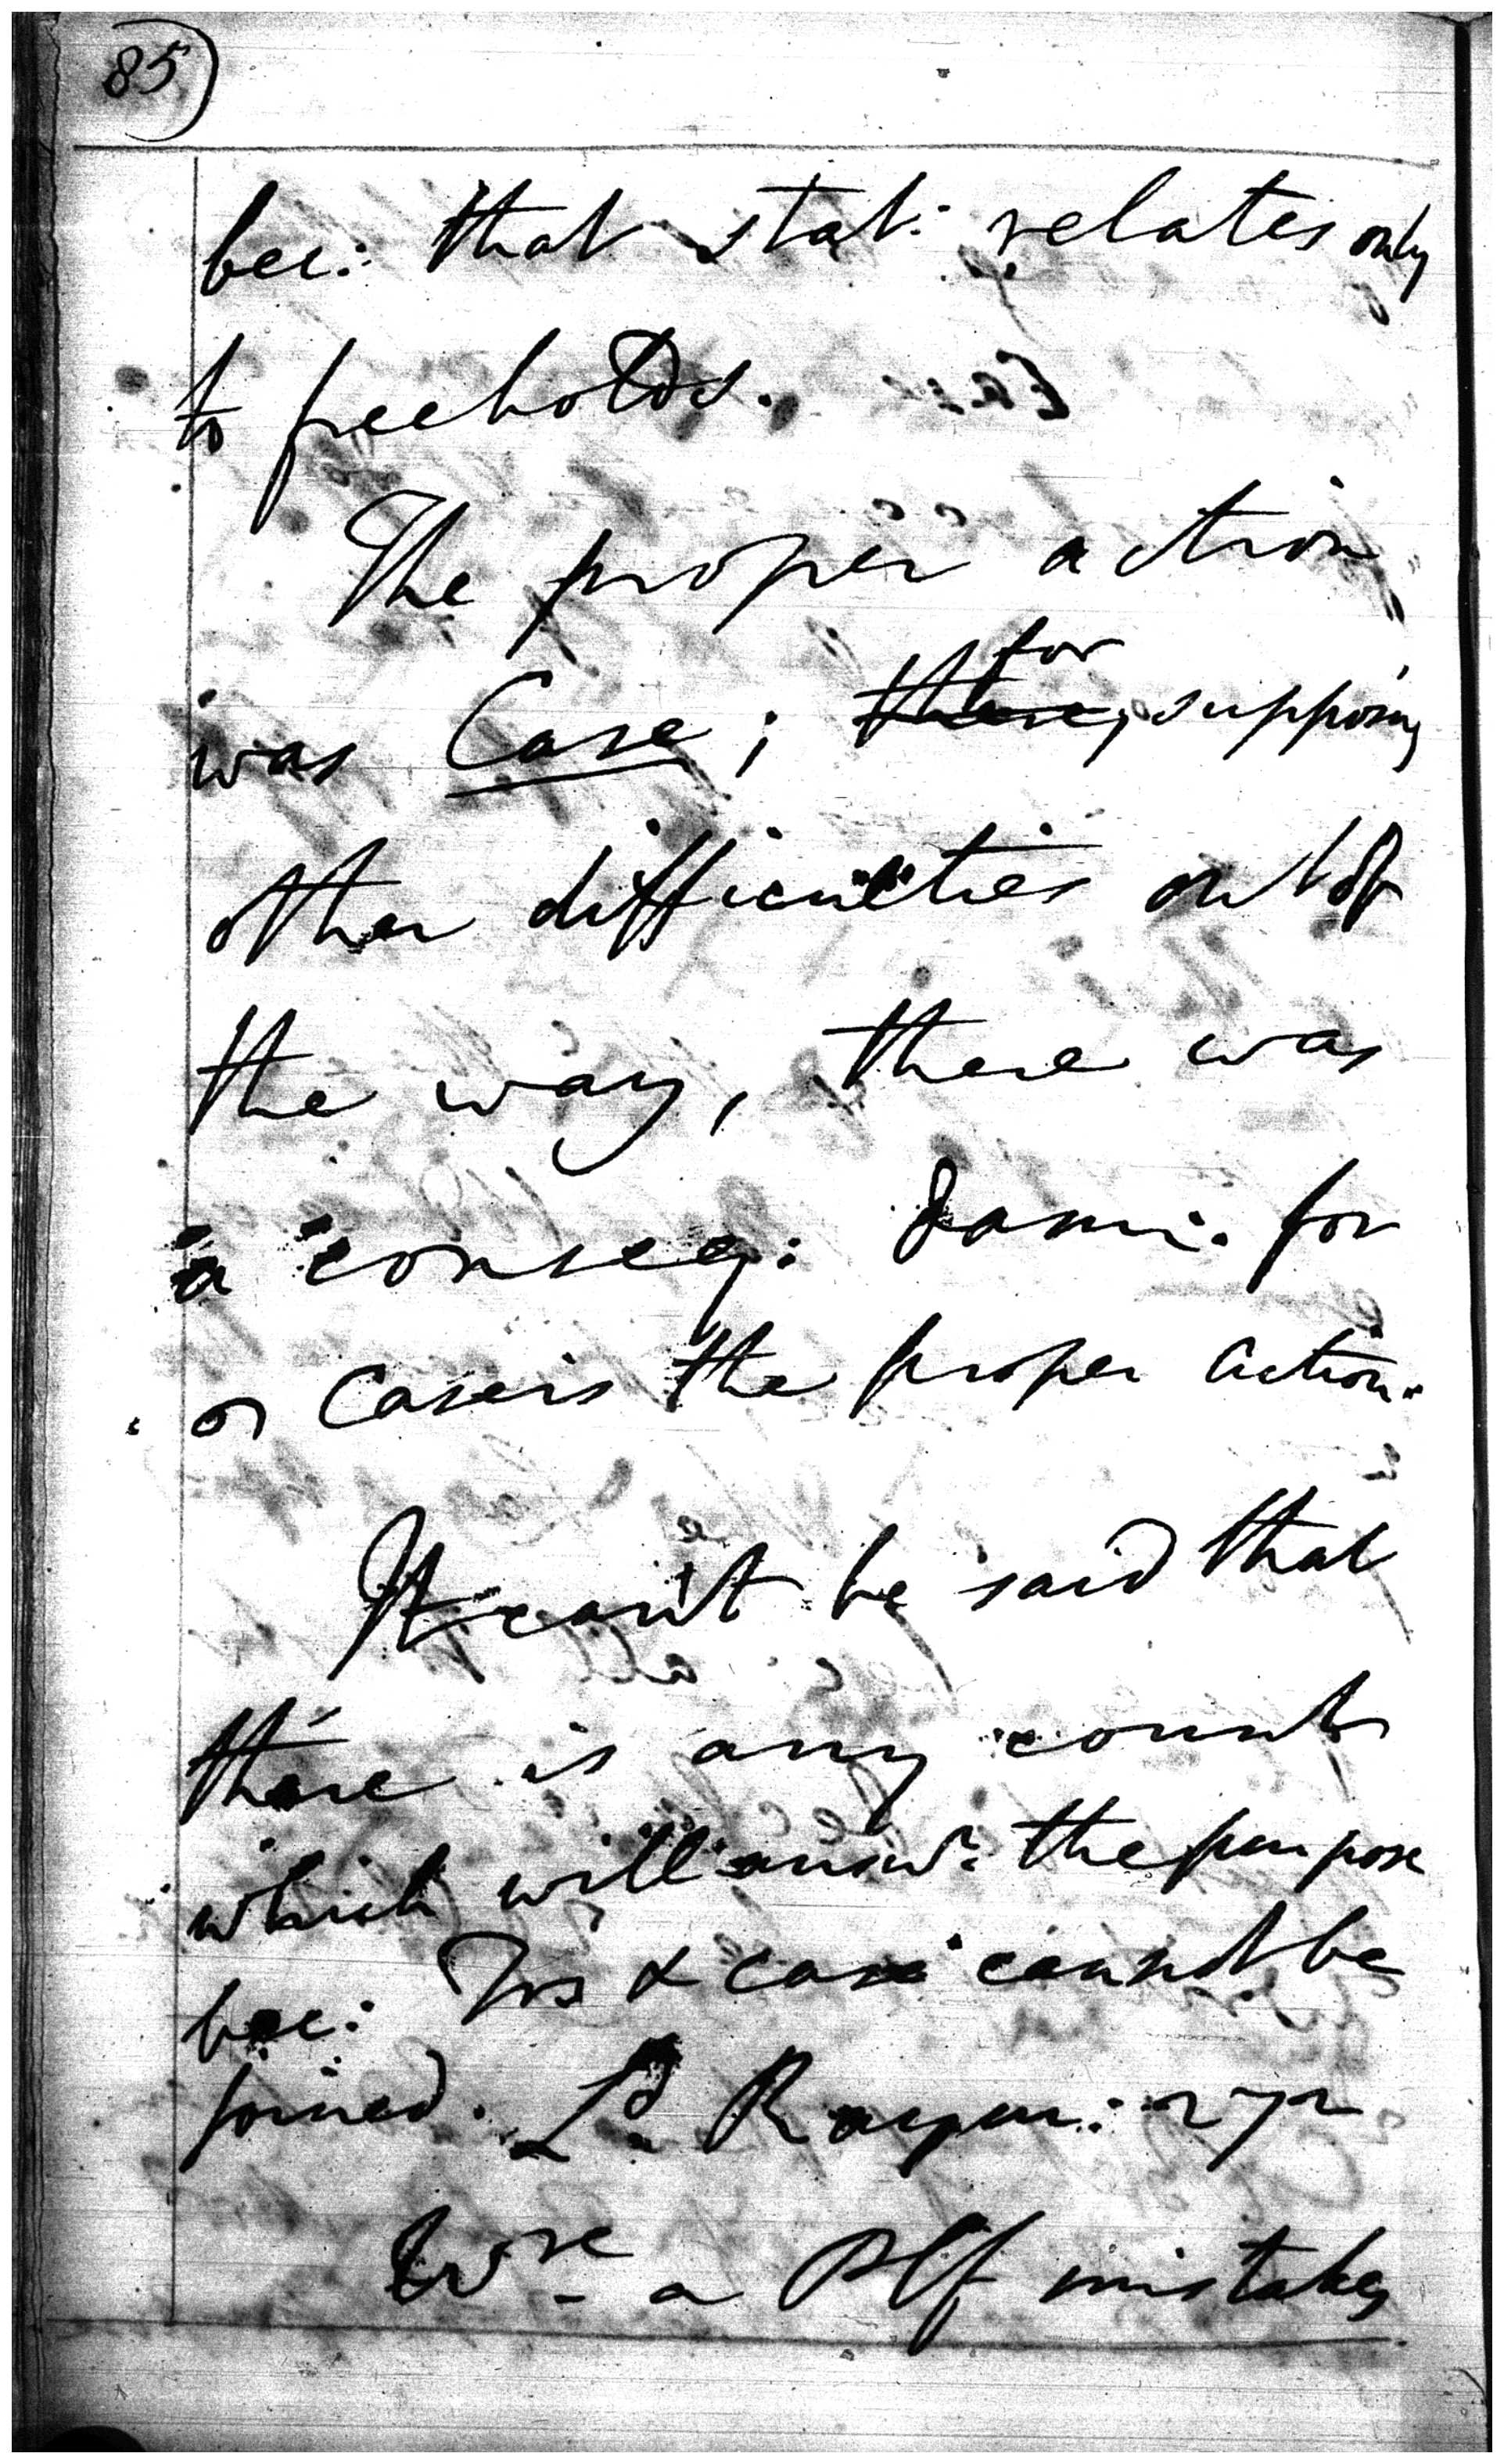 85)
bec: that stat: relates only
to freeholds.
The proper action
was Case; for supposing
other difficulties out of
the way, there was
a conseq: dam: for
Case is the proper action.
It can't be said that
there is any count
which will answ: the purpose
bec: Trs & case cannot be
joined. Ld. Raym: 272
a Plf mistakes